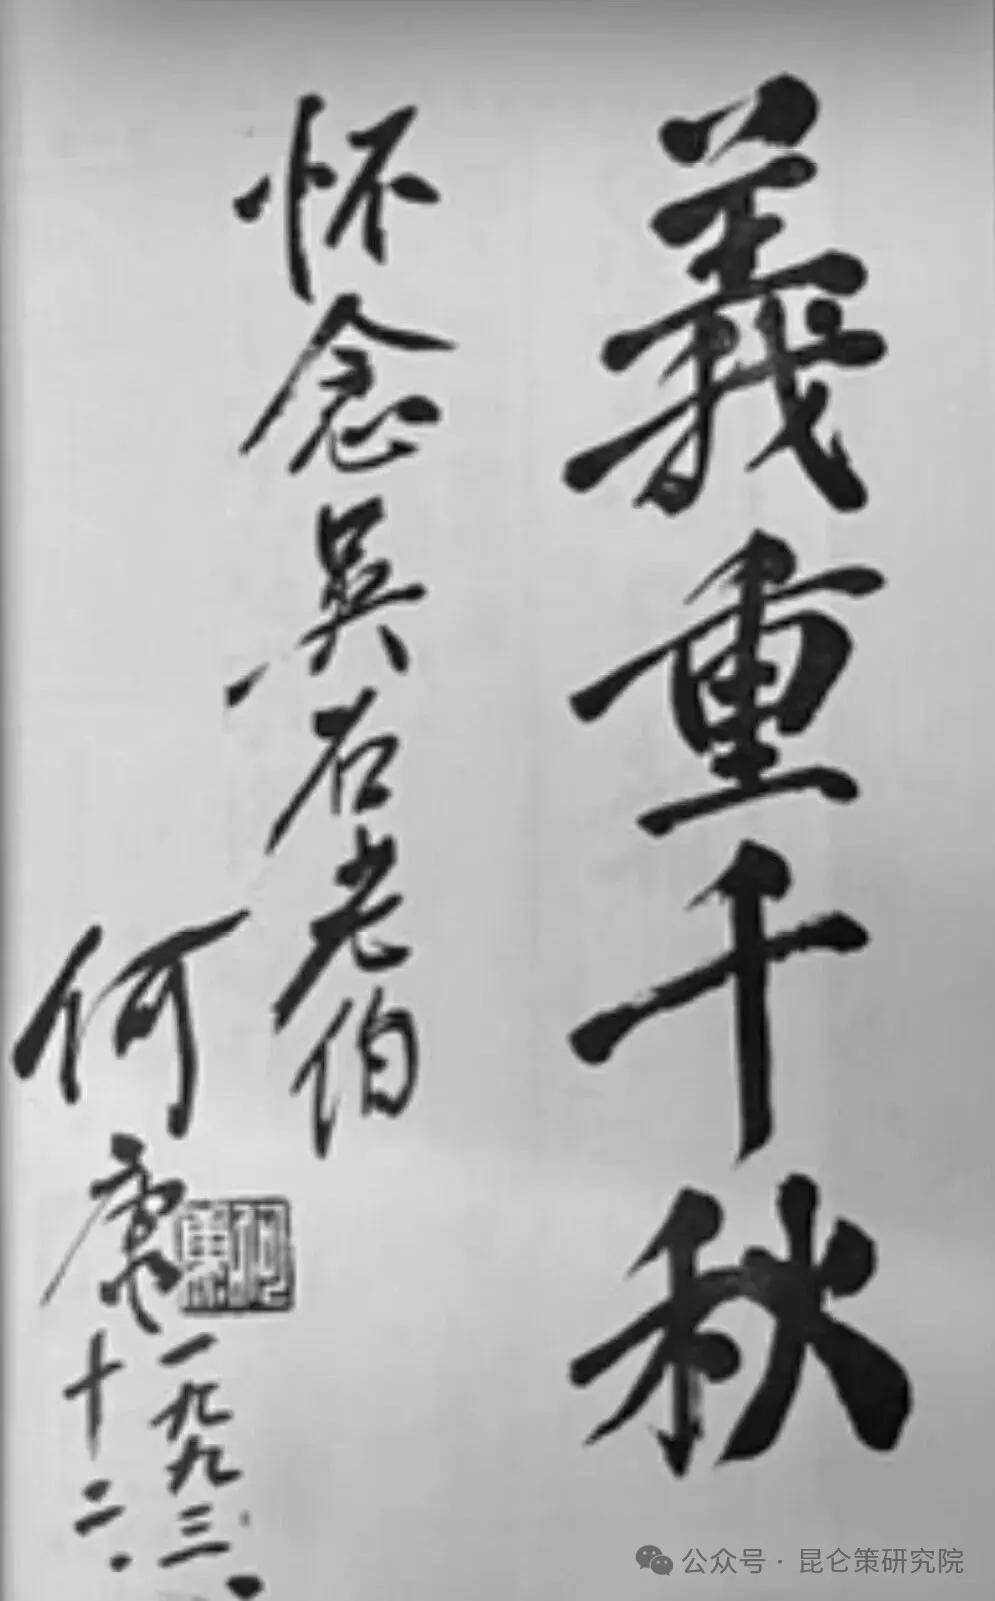 義重千秋
怀念吴石老伯
何康
一九九三.
十二.
公众号 · 昆仑策研究院